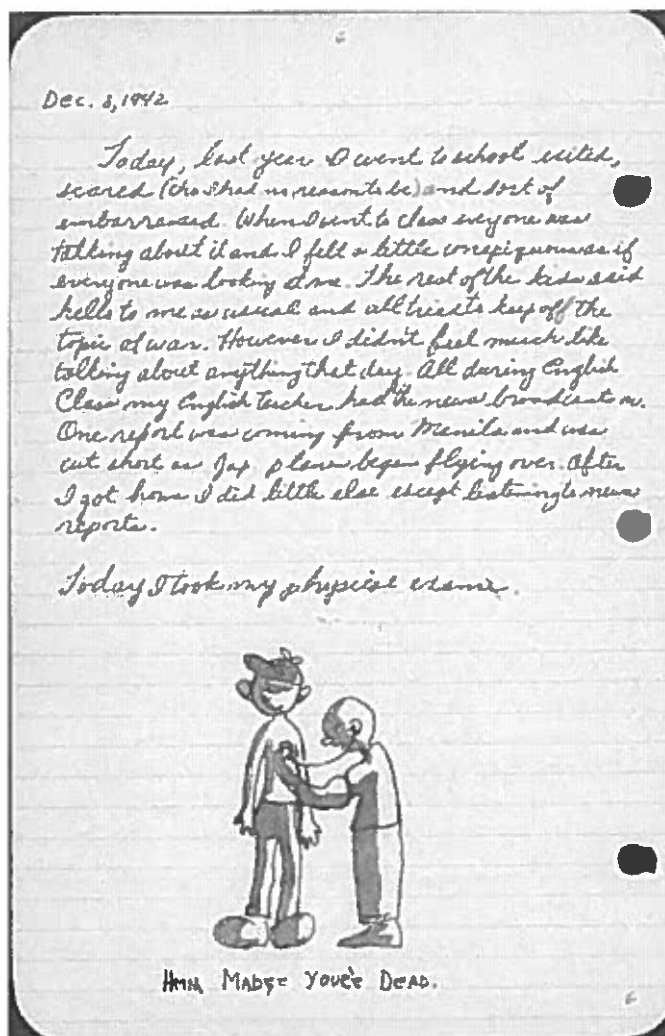 Dec. 8, 1942
Today, last year I went to school exited,
scared (tho I had no reason to be) and sort of
embarrassed. When I went to class everyone was
talking about it and I felt a little conspiquous as if
everyone was looking at me. The rest of the kids said
hello to me as usual and all tried to keep off the
topic of war. However I didn't feel much like
talking about anything that day. All during English
Class my English teacher had the news broadcast on.
One report was coming from Manila and was
cut short as Jap planes began flying over. After
I got home I did little else except listening to news
reports.
Today I took my physical exams.
HMM, MABYE YOUE'E DEAD.
6